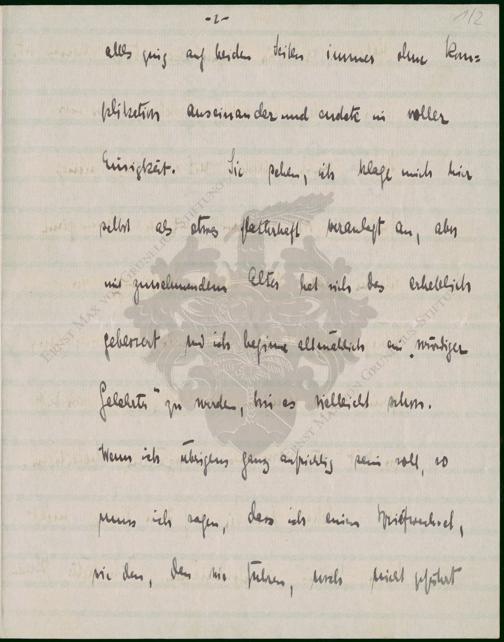 -2-
1/2
alles ging auf beiden Seiten immer ohne Kom=
plikation auseinander und endete in voller
Einigkeit. Sie sehen, ich klage mich hier
selbst als etwas flatterhaft veranlagt an, aber
mit zunehmendem Alter hat sich das erheblich
gebessert und ich beginne allmählich ein „würdiger
Gelehrter" zu werden, bin es vielleicht schon.
Wenn ich übrigens ganz aufrichtig sein soll, so
muss ich sagen, dass ich einen Briefwechsel,
wie den, den wir führen, noch nicht geführt
ERNST MAX VON GRUNELIUS-STIFTUNG
ERNST MAX VON GRUNELIUS-STIFTUNG